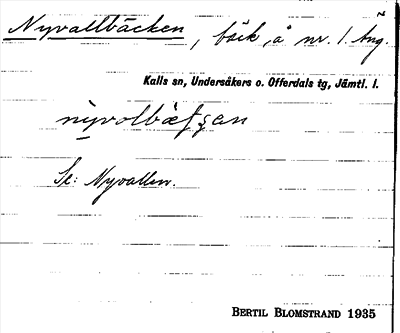 Nyvallbäcken, bäck, å nr. 1. Äng.
Kalls sn, Undersåkers o. Offerdals tg, Jämtl. l.
Se: Nyvallen.
BERTIL BLOMSTRAND 1935